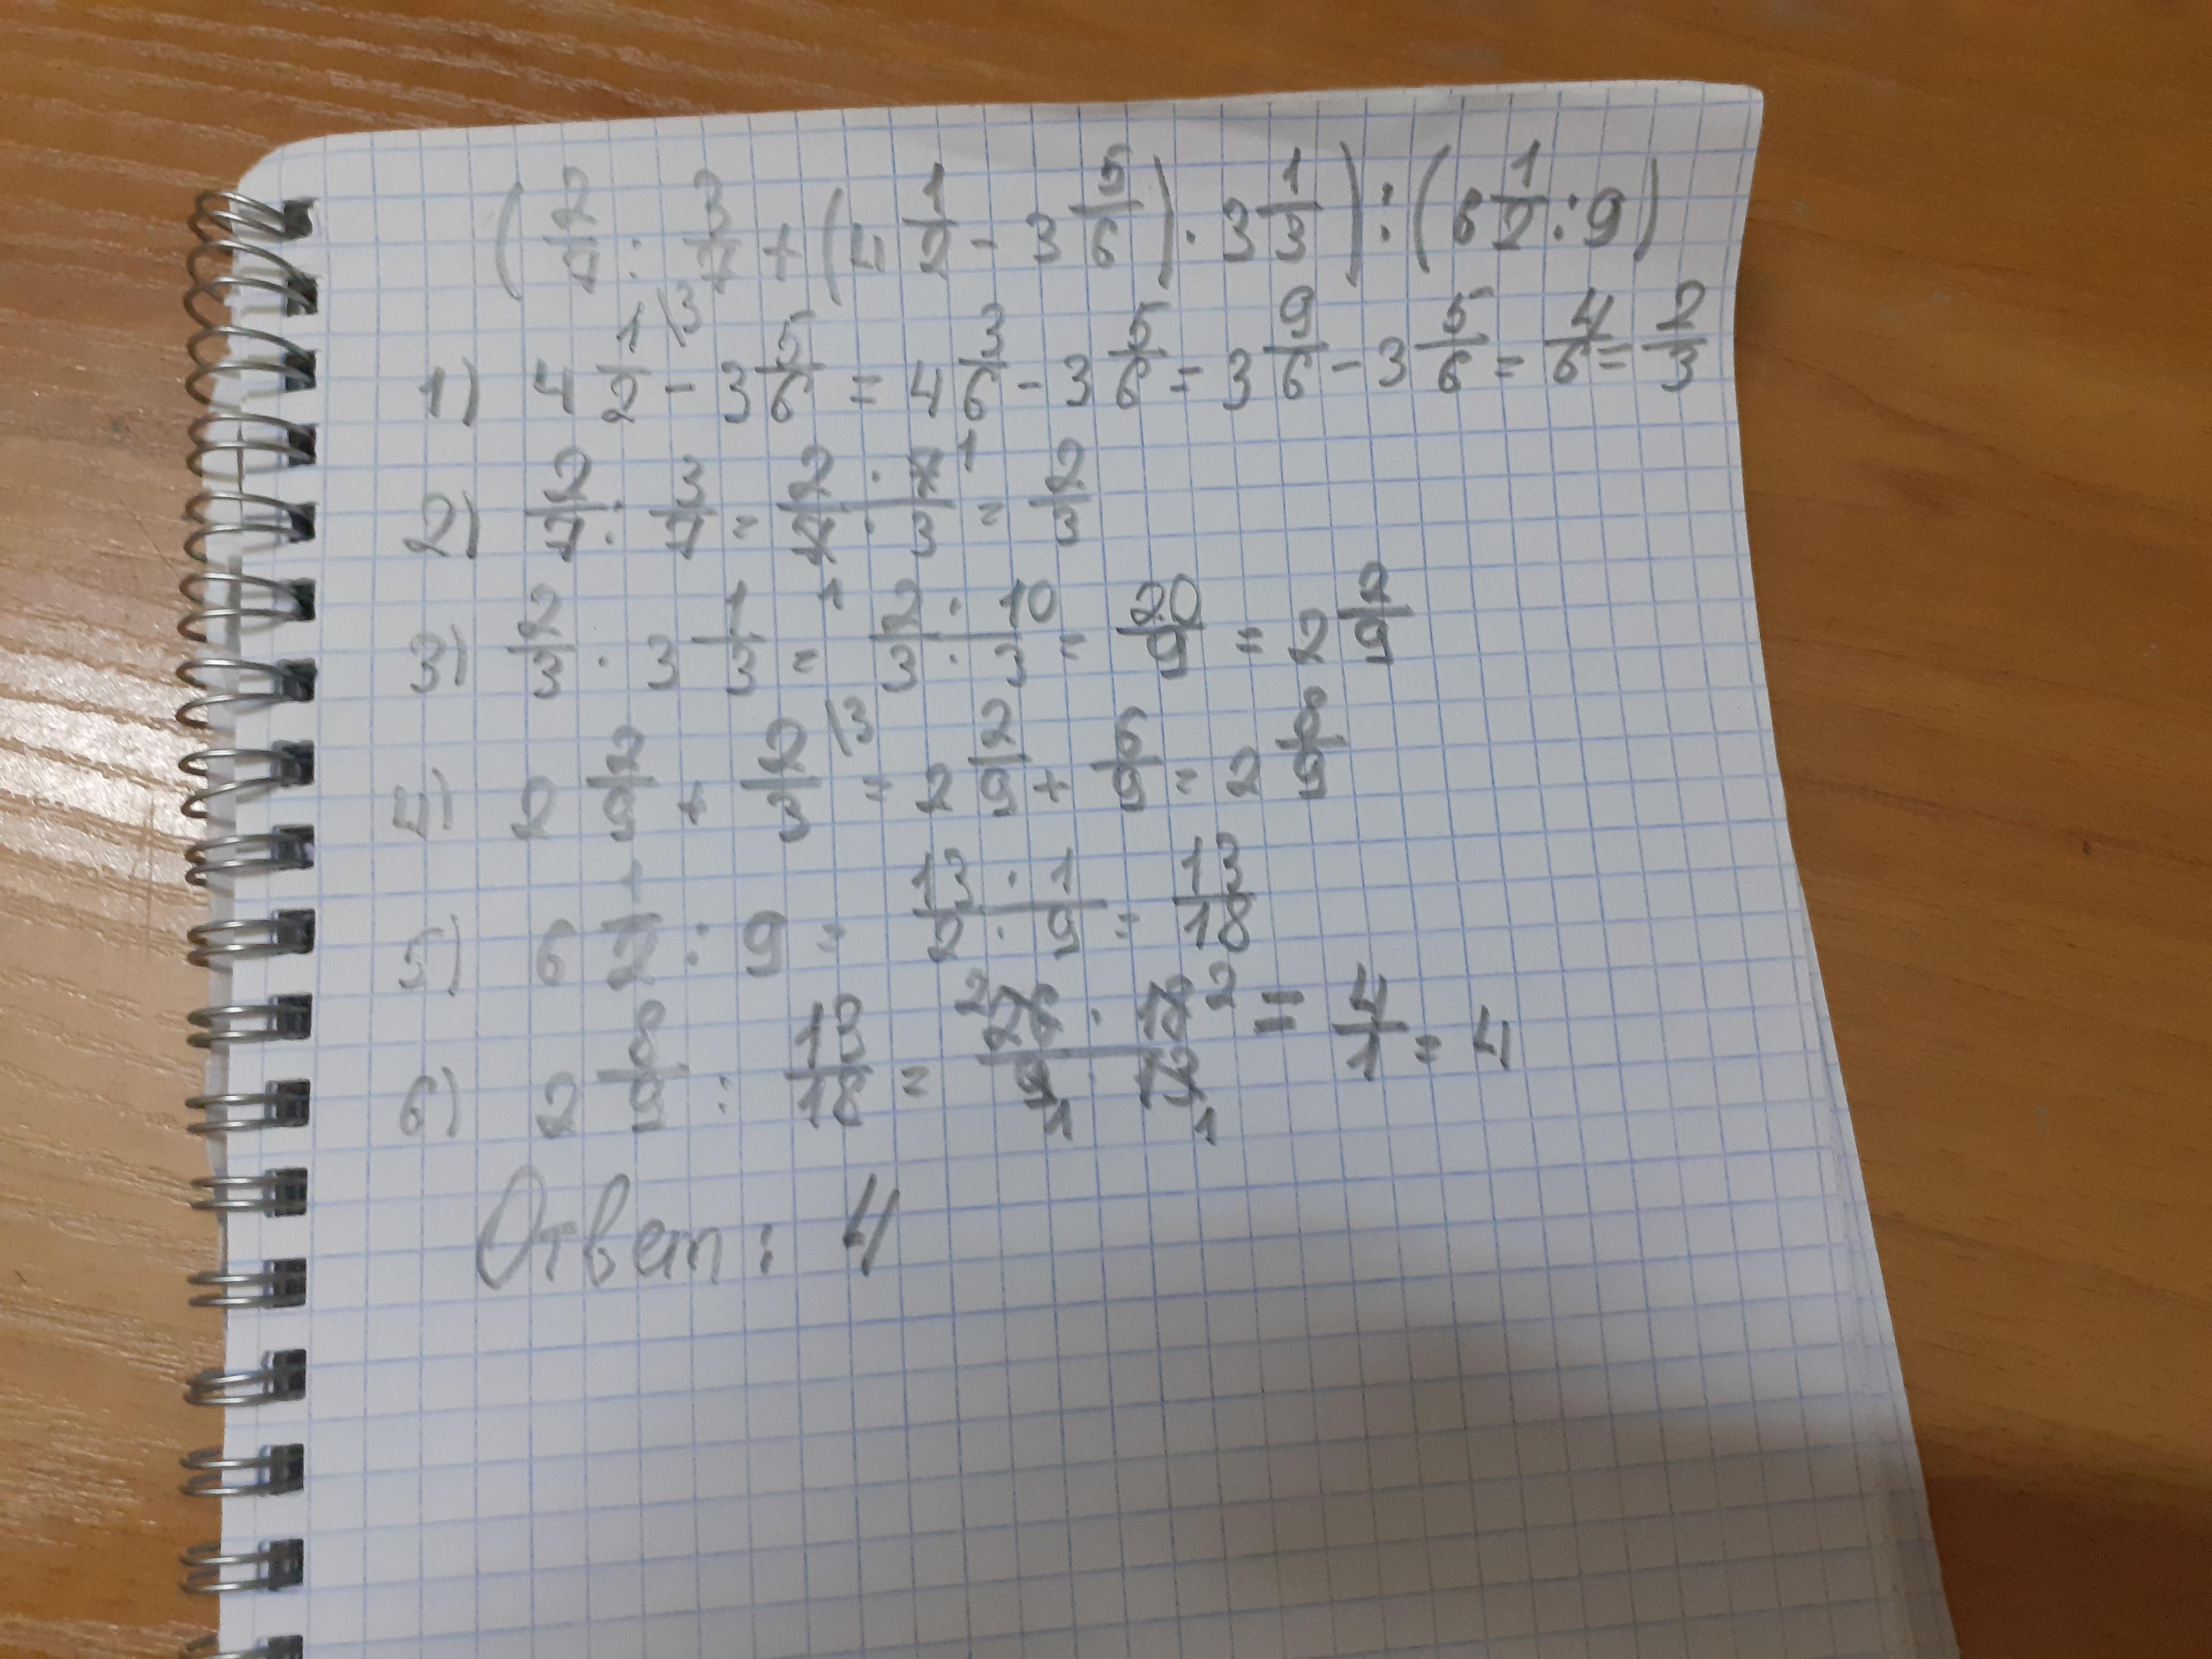 (2/7 : 3/7 + (4 1/2 - 3 5/6) · 3 1/3) : (6 1/2 : 9)
1) 4 1/2 \3 - 3 5/6 = 4 3/6 - 3 5/6 = 3 9/6 - 3 5/6 = 4/6 = 2/3
2) 2/7 : 3/7 = 2 · 7 1 / 7 · 3 1 = 2/3
3) 2/3 · 3 1/3 = 2 · 10 / 3 · 3 = 20/9 = 2 2/9
4) 2 2/9 + 2/3 \3 = 2 2/9 + 6/9 = 2 8/9
5) 6 1/2 : 9 = 13 · 1 / 2 · 9 = 13/18
6) 2 8/9 : 13/18 = 2 26 · 18 2 / 9 1 · 13 1 = 4/1 = 4
Ответ: 4